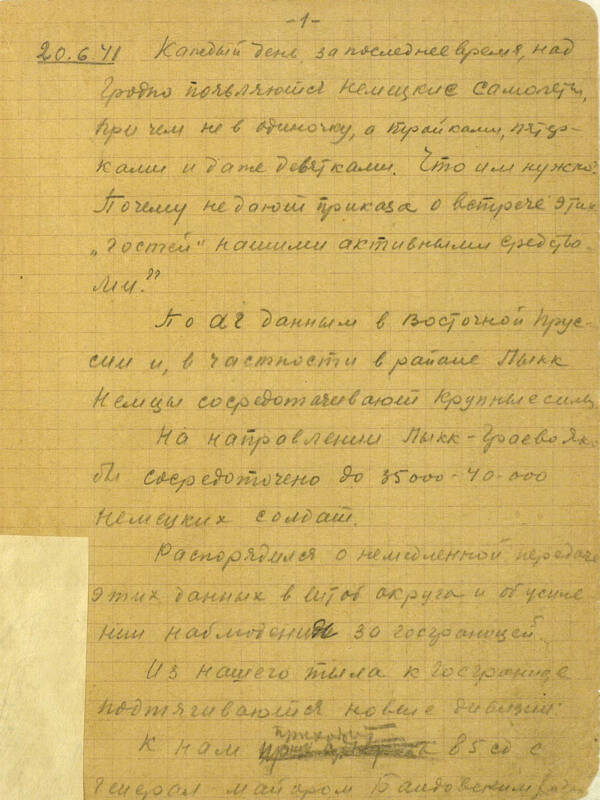 -1-
20.6.41 Каждый день за последнее время, над
Гродно появляются немецкие самолеты,
при чем не в одиночку, а тройками, пятер-
ками и даже девятками. Что им нужно?
Почему не дают приказа о встрече этих
„гостей" нашими активными средства-
ми??
По данным в Восточной Прус-
сии и, в частности в районе Лыкк
немцы сосредотачивают крупные силы
На направлении Лыкк-Граево як-
бы сосредоточено до 35000-40-000
немецких солдат.
Распорядился о немедленной передаче
этих данных в штаб округа и об усиле-
нии наблюдения за госграницей.
Из нашего тыла к госгранице
подтягиваются новые дивизии.
К нам приходит 85 сд с
генерал майором Бандовским